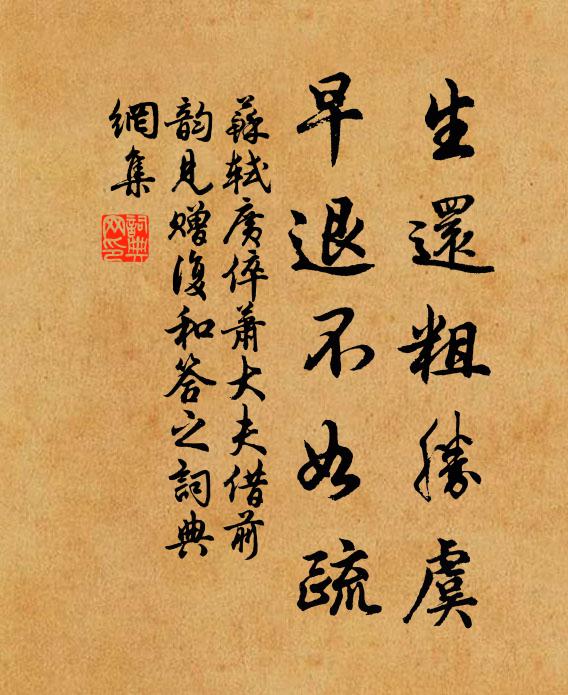 生還粗勝虞
早退不如疏
蘇軾廣倅蕭大夫借前
韵見贈復和答之詞典
網集
詞典網印